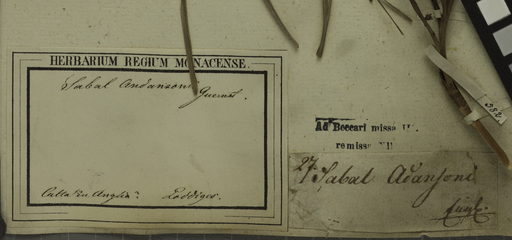 HERBARIUM REGIUM MONACENSE.
Sabal Adansoni
Guernst.
Culta in Anglia: Loddiges.
Ad Beccari missa
remissa VII
27 Sabal Adansoni
382.